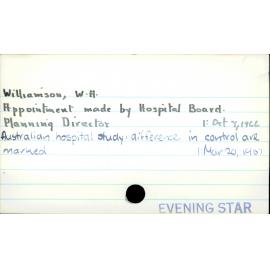 Williamson, W.A.
Appointment made by Hospital Board.
Planning Director 1: Oct 7, 1966
Australian hospital study: difference in control are
marked 1: Mar 20, 1967
EVENING STAR